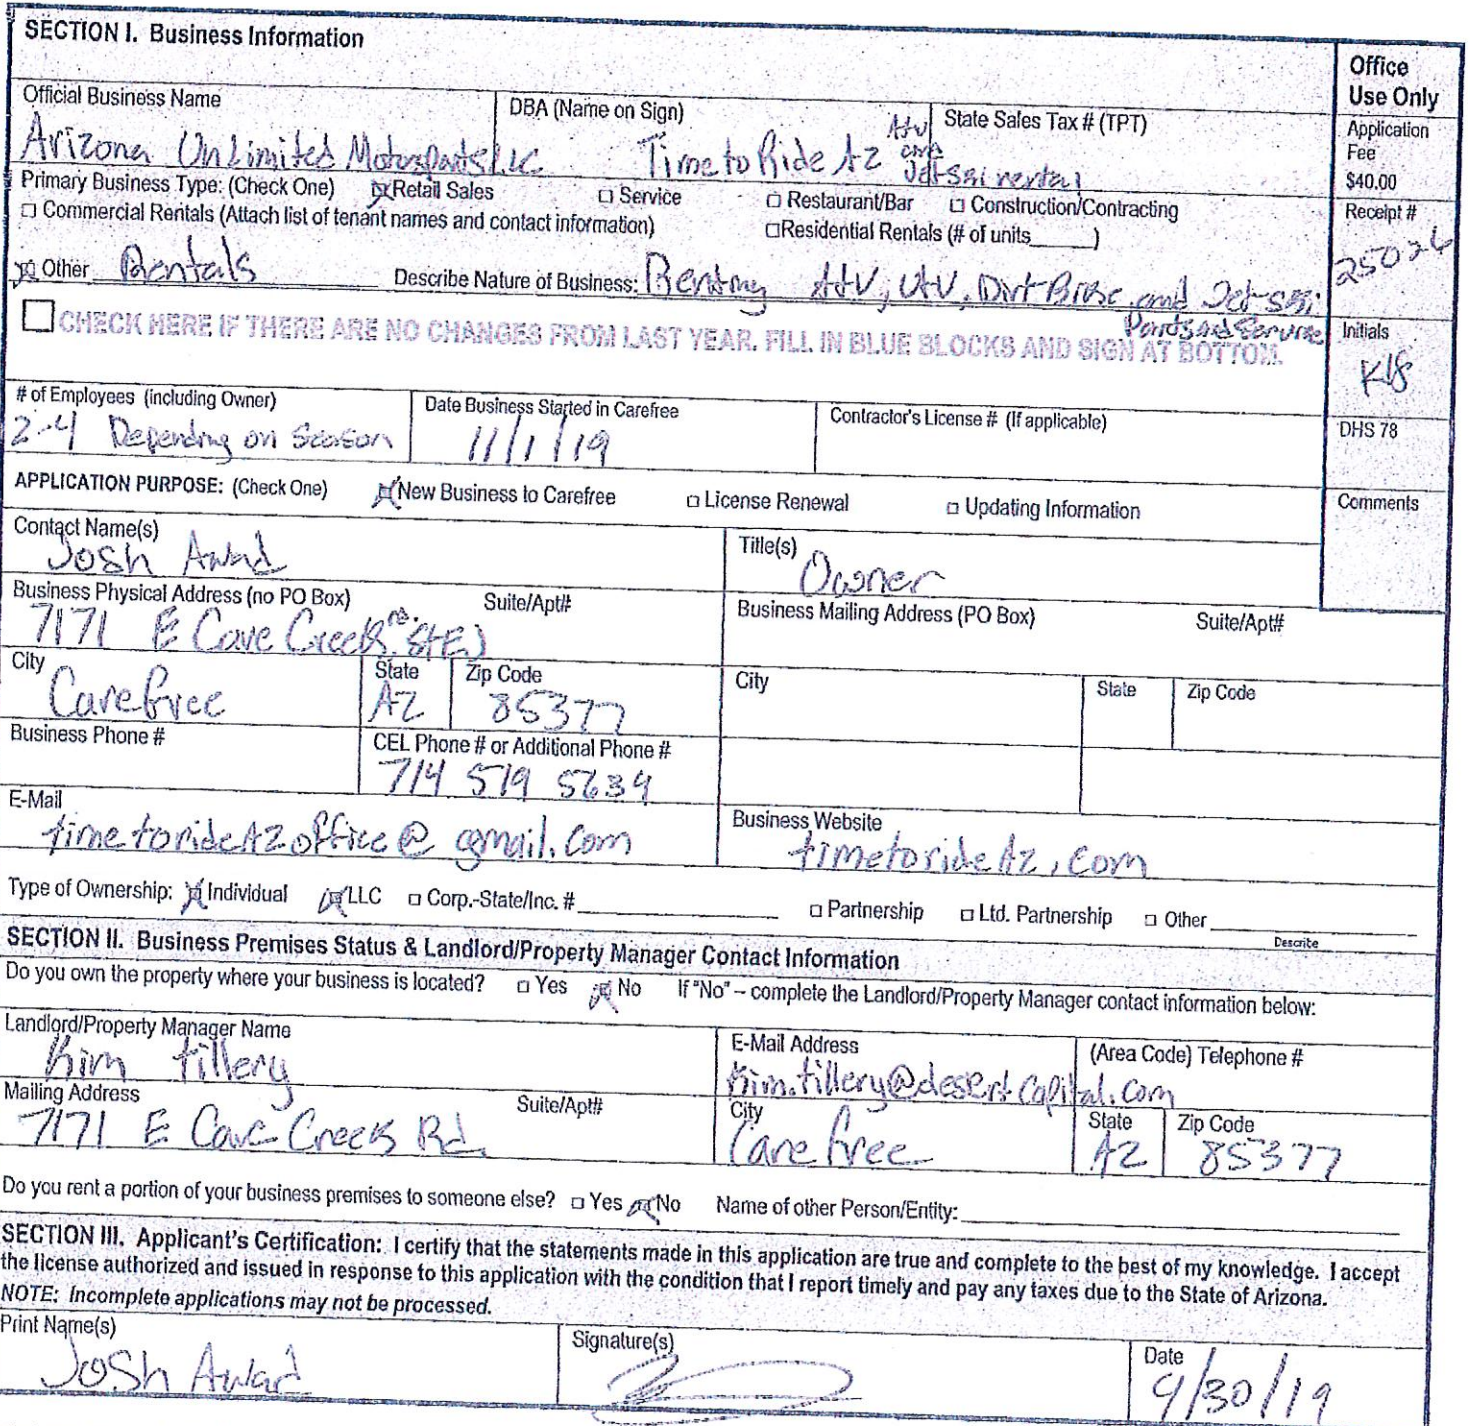 SECTION I. Business Information
Office
Use Only
Official Business Name
DBA (Name on Sign)
State Sales Tax # (TPT)
Arizona Unlimited Motorsports LLC.
Time to Ride AZ Atv and Jet-Ski rental
Application
Fee
$40.00
Primary Business Type: (Check One) Retail Sales Service Restaurant/Bar Construction/Contracting
Commercial Rentals (Attach list of tenant names and contact information) Residential Rentals (# of units_____)
Receipt #
25026
Other Rentals Describe Nature of Business: Renting Atv, UtV, Dirt Bike, and Jet-ski
Parts and Service
CHECK HERE IF THERE ARE NO CHANGES FROM LAST YEAR. FILL IN BLUE BLOCKS AND SIGN AT BOTTOM.
Initials
# of Employees (including Owner)
Date Business Started in Carefree
Contractor's License # (If applicable)
2-4 Depending on Season
11/1/19
DHS 78
APPLICATION PURPOSE: (Check One) New Business to Carefree License Renewal Updating Information
Comments
Contact Name(s)
Josh Awad
Title(s)
Owner
Business Physical Address (no PO Box) Suite/Apt#
7171 E Cave Creek rd. STE J
Business Mailing Address (PO Box) Suite/Apt#
City
Carefree
State
AZ
Zip Code
85377
City
State
Zip Code
Business Phone #
CEL Phone # or Additional Phone #
714 519 5634
E-Mail
timetorideAZoffice@gmail.com
Business Website
timetorideAz.com
Type of Ownership: Individual LLC Corp.-State/Inc. #__________ Partnership Ltd. Partnership Other__________
Describe
SECTION II. Business Premises Status & Landlord/Property Manager Contact Information
Do you own the property where your business is located? Yes No If "No" – complete the Landlord/Property Manager contact information below:
Landlord/Property Manager Name
Kim tillery
E-Mail Address
Kim.tillery@desertcapital.com
(Area Code) Telephone #
Mailing Address Suite/Apt#
7171 E Cave Creek Rd.
City
Carefree
State
AZ
Zip Code
85377
Do you rent a portion of your business premises to someone else? Yes No Name of other Person/Entity:__________
SECTION III. Applicant's Certification: I certify that the statements made in this application are true and complete to the best of my knowledge. I accept
the license authorized and issued in response to this application with the condition that I report timely and pay any taxes due to the State of Arizona.
NOTE: Incomplete applications may not be processed.
Print Name(s)
Josh Awad
Signature(s)
Date
9/30/19